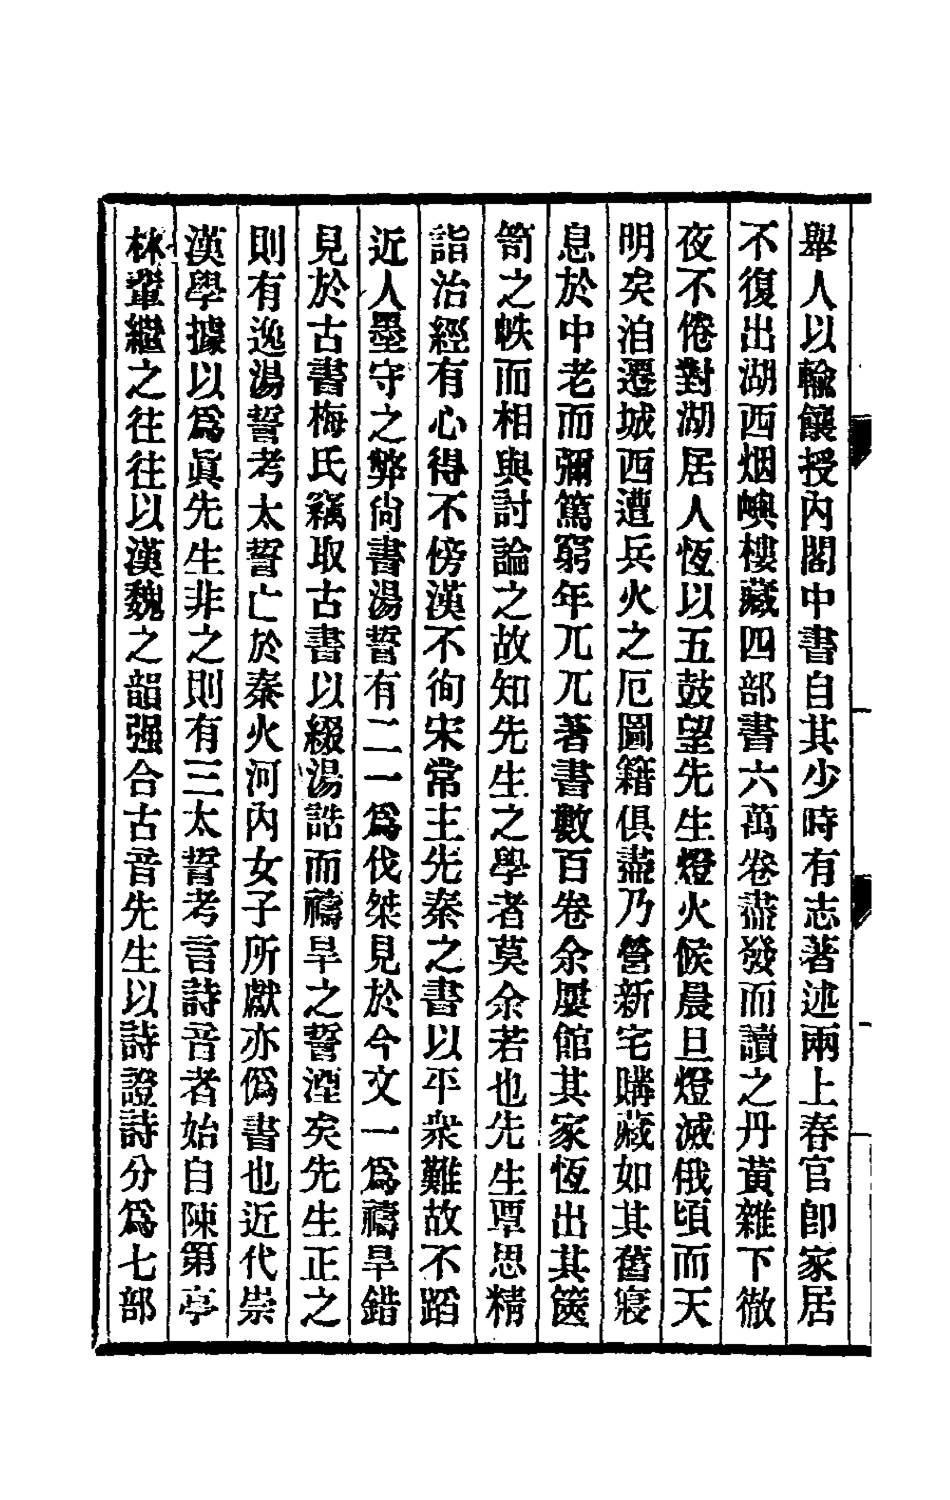 舉人以輸饟授內閣中書自其少時有志著述兩上春官卽家居
不復出湖西烟嶼樓藏四部書六萬卷盡發而讀之丹黃雜下徹
夜不倦對湖居人恆以五鼓望先生燈火候晨旦燈滅俄頃而天
明矣洎遷城西遭兵火之厄圖籍俱盡乃營新宅購藏如其舊寢
息於中老而彌篤窮年兀兀著書數百卷余屢館其家恆出其篋
笥之帙而相與討論之故知先生之學者莫余若也先生覃思精
詣治經有心得不傍漢不徇宋常主先秦之書以平衆難故不蹈
近人墨守之弊尙書湯誓有二一爲伐桀見於今文一爲禱旱錯
見於古書梅氏竊取古書以綴湯誥而禱旱之誓湮矣先生正之
則有逸湯誓考太誓亡於秦火河內女子所獻亦僞書也近代崇
漢學據以爲眞先生非之則有三太誓考言詩音者始自陳第亭
林輩繼之往往以漢魏之韻强合古音先生以詩證詩分爲七部